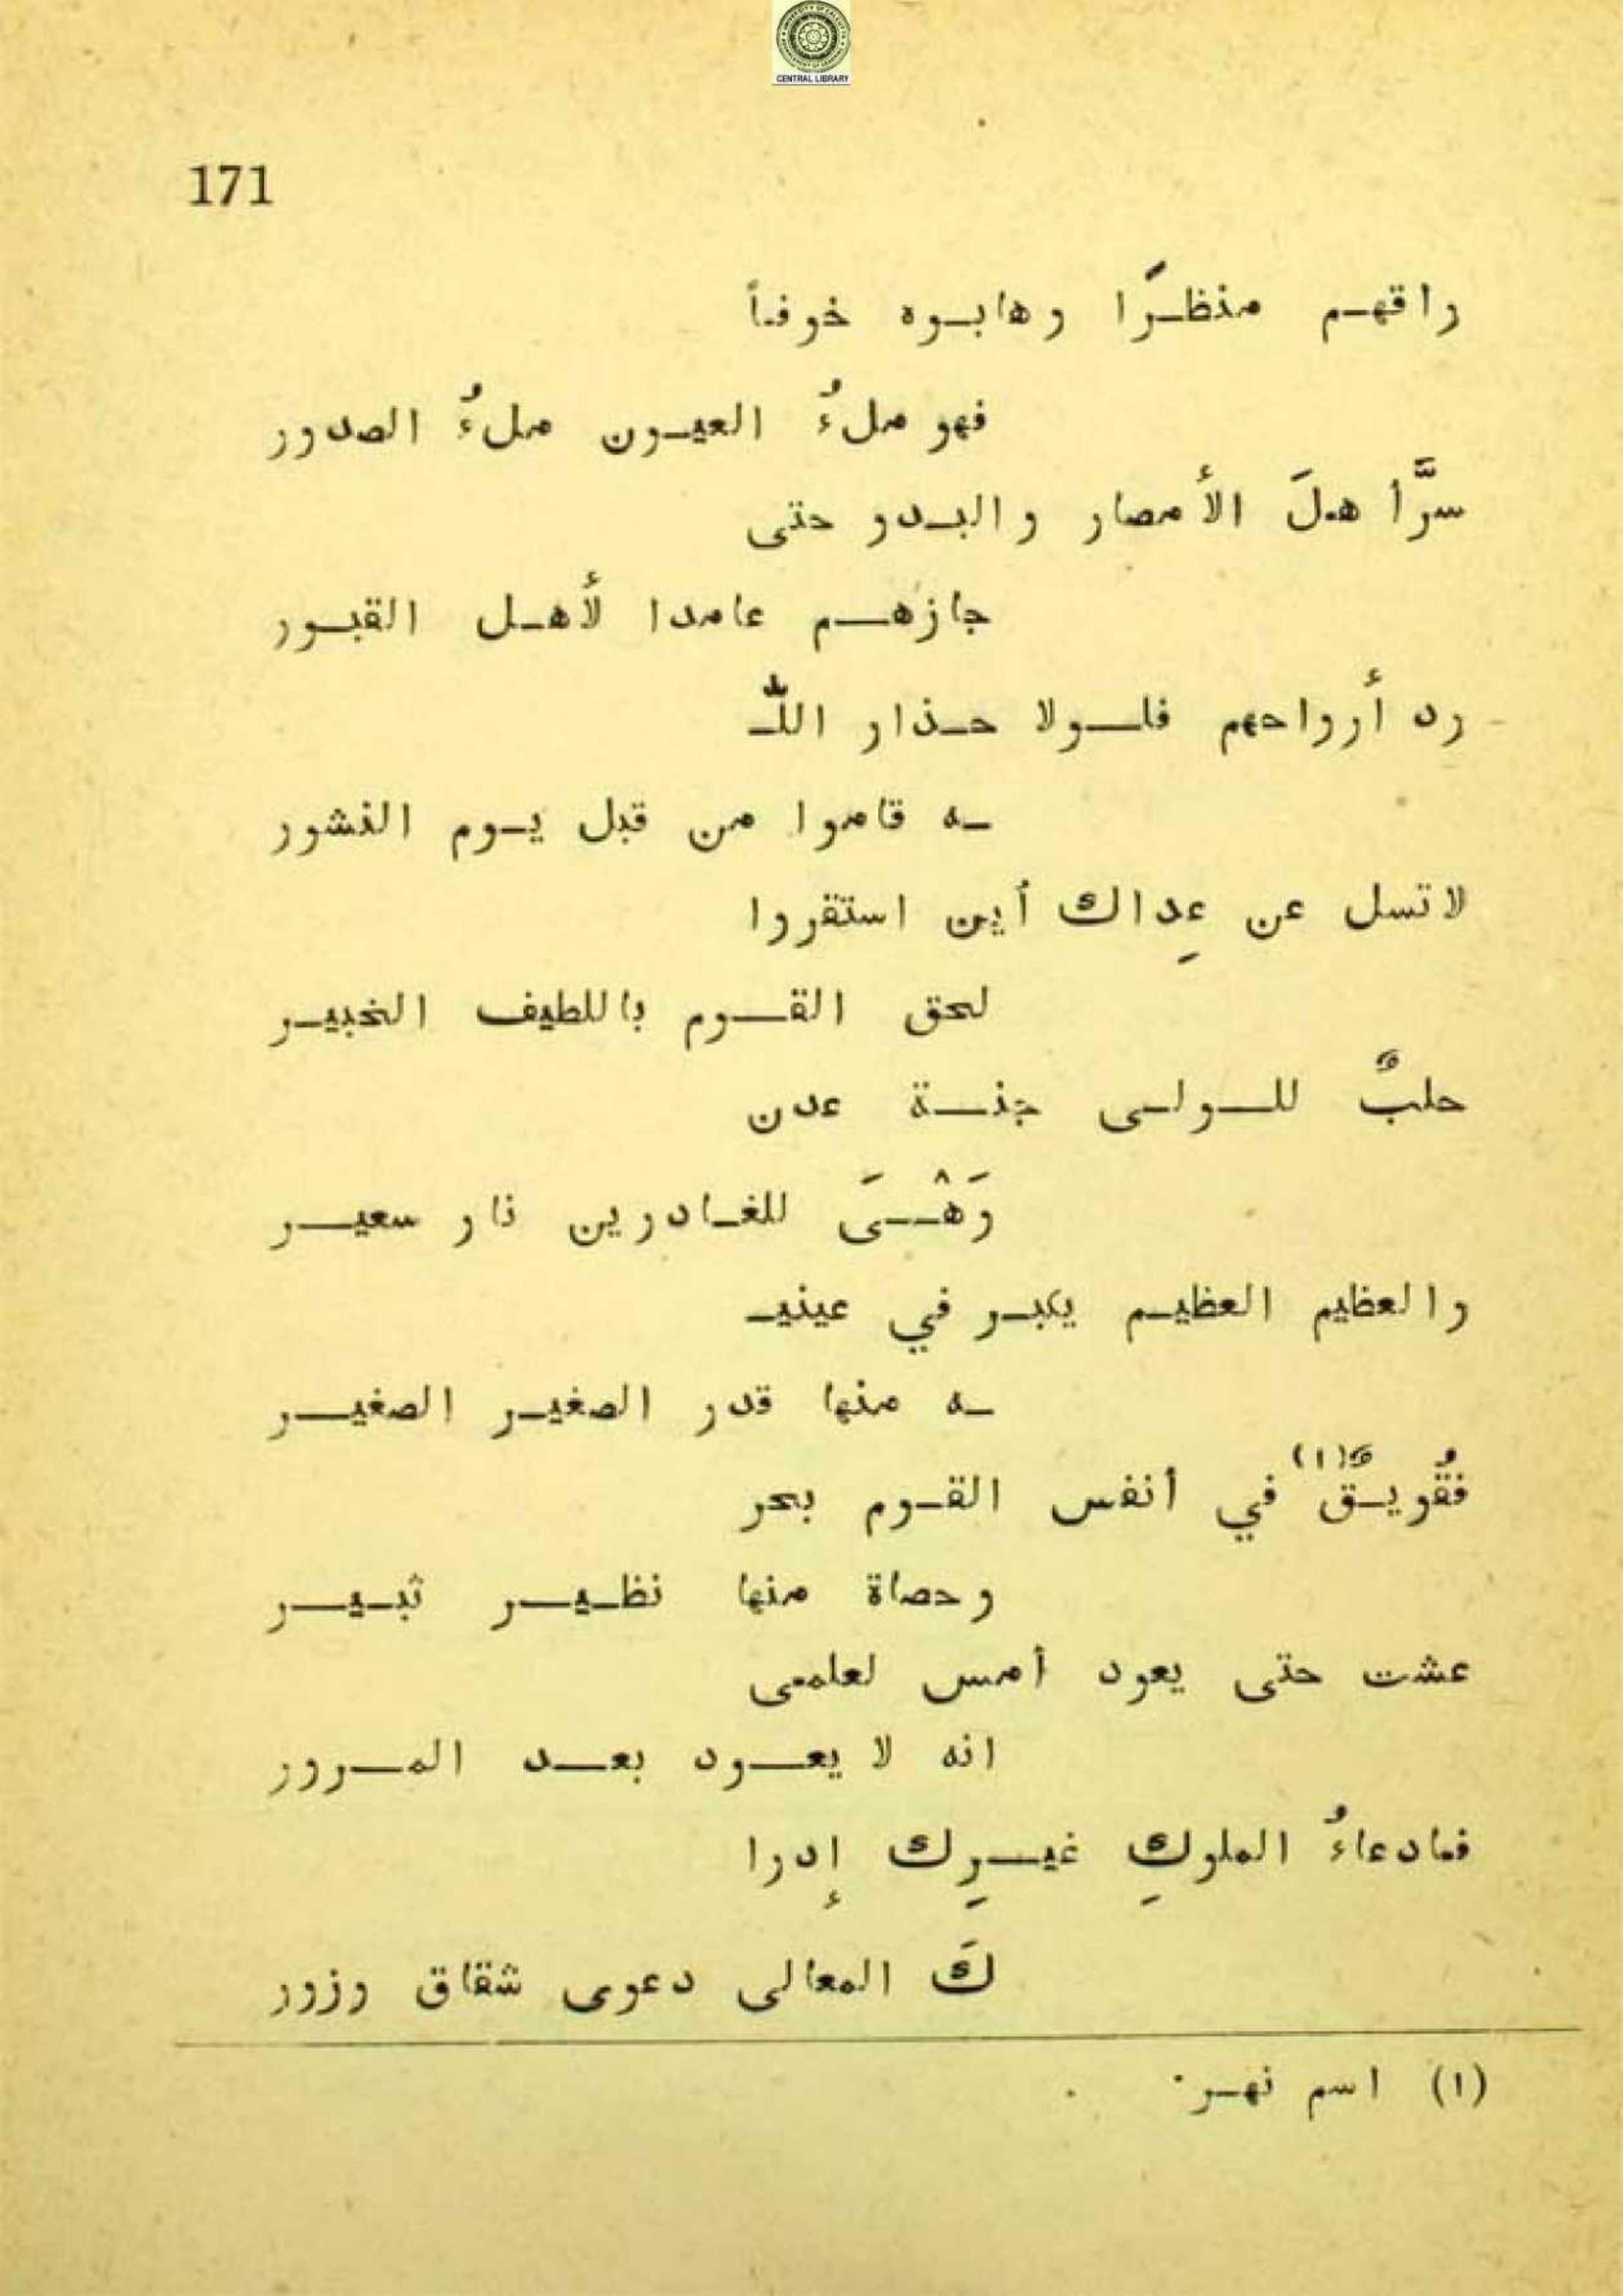 CENTRAL LIBRARY
171
راقهم منظرًا وهابوه خوفاً
فهو ملءُ العيون ملءُ الصدور
سرَّ أهلَ الأمصار والبدو حتى
جازهم عامدا لأهل القبور
رد أرواحهم فلولا حذار اللّـ
ـه قاموا من قبل يوم النشور
لا تسل عن عِداك أين استقروا
لحق القوم باللطيف الخبير
حلبٌ للولى جنة عدن
وَهْىَ للغادرين نار سعير
والعظيم العظيم يكبر في عينيـ
ـه منها قدر الصغير الصغير
فقُويقٌ(١) في أنفس القوم بحر
وحصاة منها نظير ثبير
عشت حتى يعود أمس لعلمى
انه لا يعود بعد المرور
فمادعاءُ الملوكِ غيرِك إدرا
كَ المعالى دعوى شقاق وزور
(١) اسم نهر.